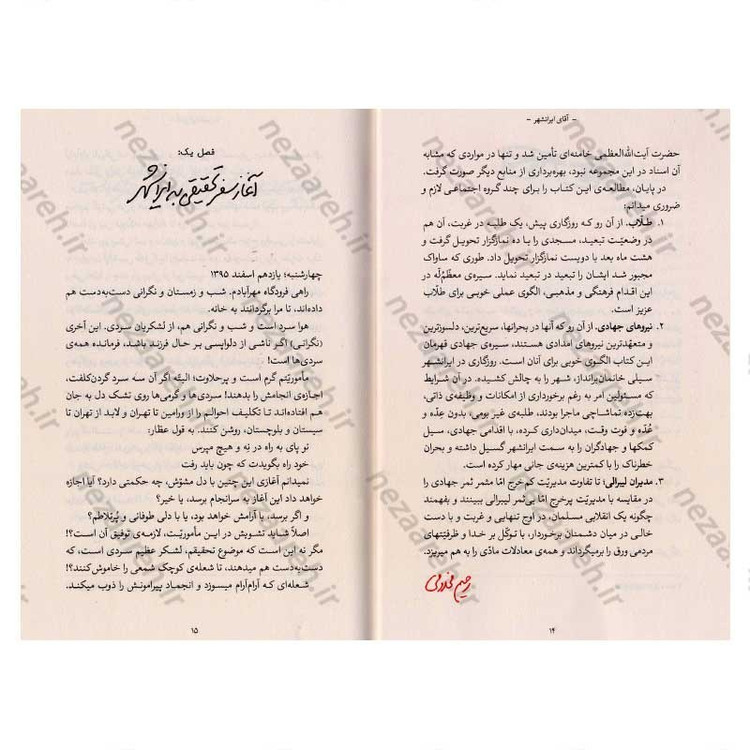 - آقای ایرانشهر -
حضرت آیت‌الله‌العظمی خامنه‌ای تأمین شد و تنها در مواردی که مشابه
آن اسناد در این مجموعه نبود، بهره‌برداری از منابع دیگر صورت گرفت.
در پایان، مطالعه‌ی این کتاب را برای چند گروه اجتماعی لازم و
ضروری میدانم:
۱. طلّاب. از آن رو که روزگاری پیش، یک طلبه در غربت، آن هم
در وضعیّت تبعید، مسجدی را با ده نمازگزار تحویل گرفت و
هشت ماه بعد با دویست نمازگزار تحویل داد. طوری که ساواک
مجبور شد ایشان را تبعید در تبعید نماید. سیره‌ی معظّم‌ٌله در
این اقدام فرهنگی و مذهبی، الگوی عملی خوبی برای طلّاب
عزیز است.
۲. نیروهای جهادی. از آن رو که آنها در بحرانها، سریع‌ترین، دلسوزترین
و متعهّدترین نیروهای امدادی هستند، سیره‌ی جهادی قهرمان
این کتاب الگوی خوبی برای آنان است. روزگاری در ایرانشهر
سیلی خانمان‌برانداز، شهر را به چالش کشیده. در آن شرایط
که مسئولین امر به رغم برخورداری از امکانات و وظیفه‌ی ذاتی،
بهت‌زده تماشاچی ماجرا بودند، طلبه‌ی غیر بومی، بدون عِدّه و
عُدّه و فوت وقت، میدان‌داری کرده، با اقدامی جهادی، سیل
کمکها و جهادگران را به سمت ایرانشهر گسیل داشته و بحران
خطرناک را با کمترین هزینه‌ی جانی مهار کرده است.
۳. مدیران لیبرالی؛ تا تفاوت مدیریّت کم خرج امّا مثمر ثمر جهادی را
در مقایسه با مدیریّت پرخرج امّا بی‌ثمر لیبرالی ببینند و بفهمند
چگونه یک انقلابی مسلمان، در اوج تنهایی و غربت و با دست
خالی در میان دشمنان برخوردار، با توکّل بر خدا و ظرفیّتهای
مردمی ورق را برمیگرداند و همه‌ی معادلات مادّی را به هم میریزد.
رحیم مخدومی
۱۴
فصل یک:
آغاز سفر تحقیقی به ایرانشهر
چهارشنبه؛ یازدهم اسفند ۱۳۹۵
راهی فرودگاه مهرآبادم. شب و زمستان و نگرانی دست‌به‌دست هم
داده‌اند، تا مرا برگردانند به خانه.
هوا سرد است و شب و نگرانی هم، از لشکریان سردی. این آخری
(نگرانی) اگر ناشی از دلواپسی بر حال فرزند باشد، فرمانده همه‌ی
سردی‌ها است!
مأموریّتم گرم است و پرحلاوت؛ البتّه اگر آن سه سرد گردن‌کلفت،
اجازه‌ی انجامش را بدهند! سردی‌ها و گرمی‌ها روی تشک دل به جان
هم افتاده‌اند تا تکلیف احوالم را از ورامین تا تهران و لابد از تهران تا
سیستان و بلوچستان، روشن کنند. به قول عطار:
تو پای به راه در نِه و هیچ مپرس
خود راه بگویدت که چون باید رفت
نمیدانم آغازی این چنین با دل مشوّش، چه حکمتی دارد؟ آیا اجازه
خواهد داد این آغاز به سرانجام برسد، یا خیر؟
و اگر برسد، با آرامش خواهد بود، یا با دلی طوفانی و پُرتلاطم؟
اصلاً شاید تشویش در این مأموریّت، لازمه‌ی توفیق آن است؟!
مگر نه این است که موضوع تحقیقم، لشکر عظیم سردی است، که
دست‌به‌دست هم میدهند، تا شعله‌ی کوچک شمعی را خاموش کنند؟!
شعله‌ای که آرام‌آرام میسوزد و انجماد پیرامونش را ذوب میکند.
۱۵
nezaareh.ir